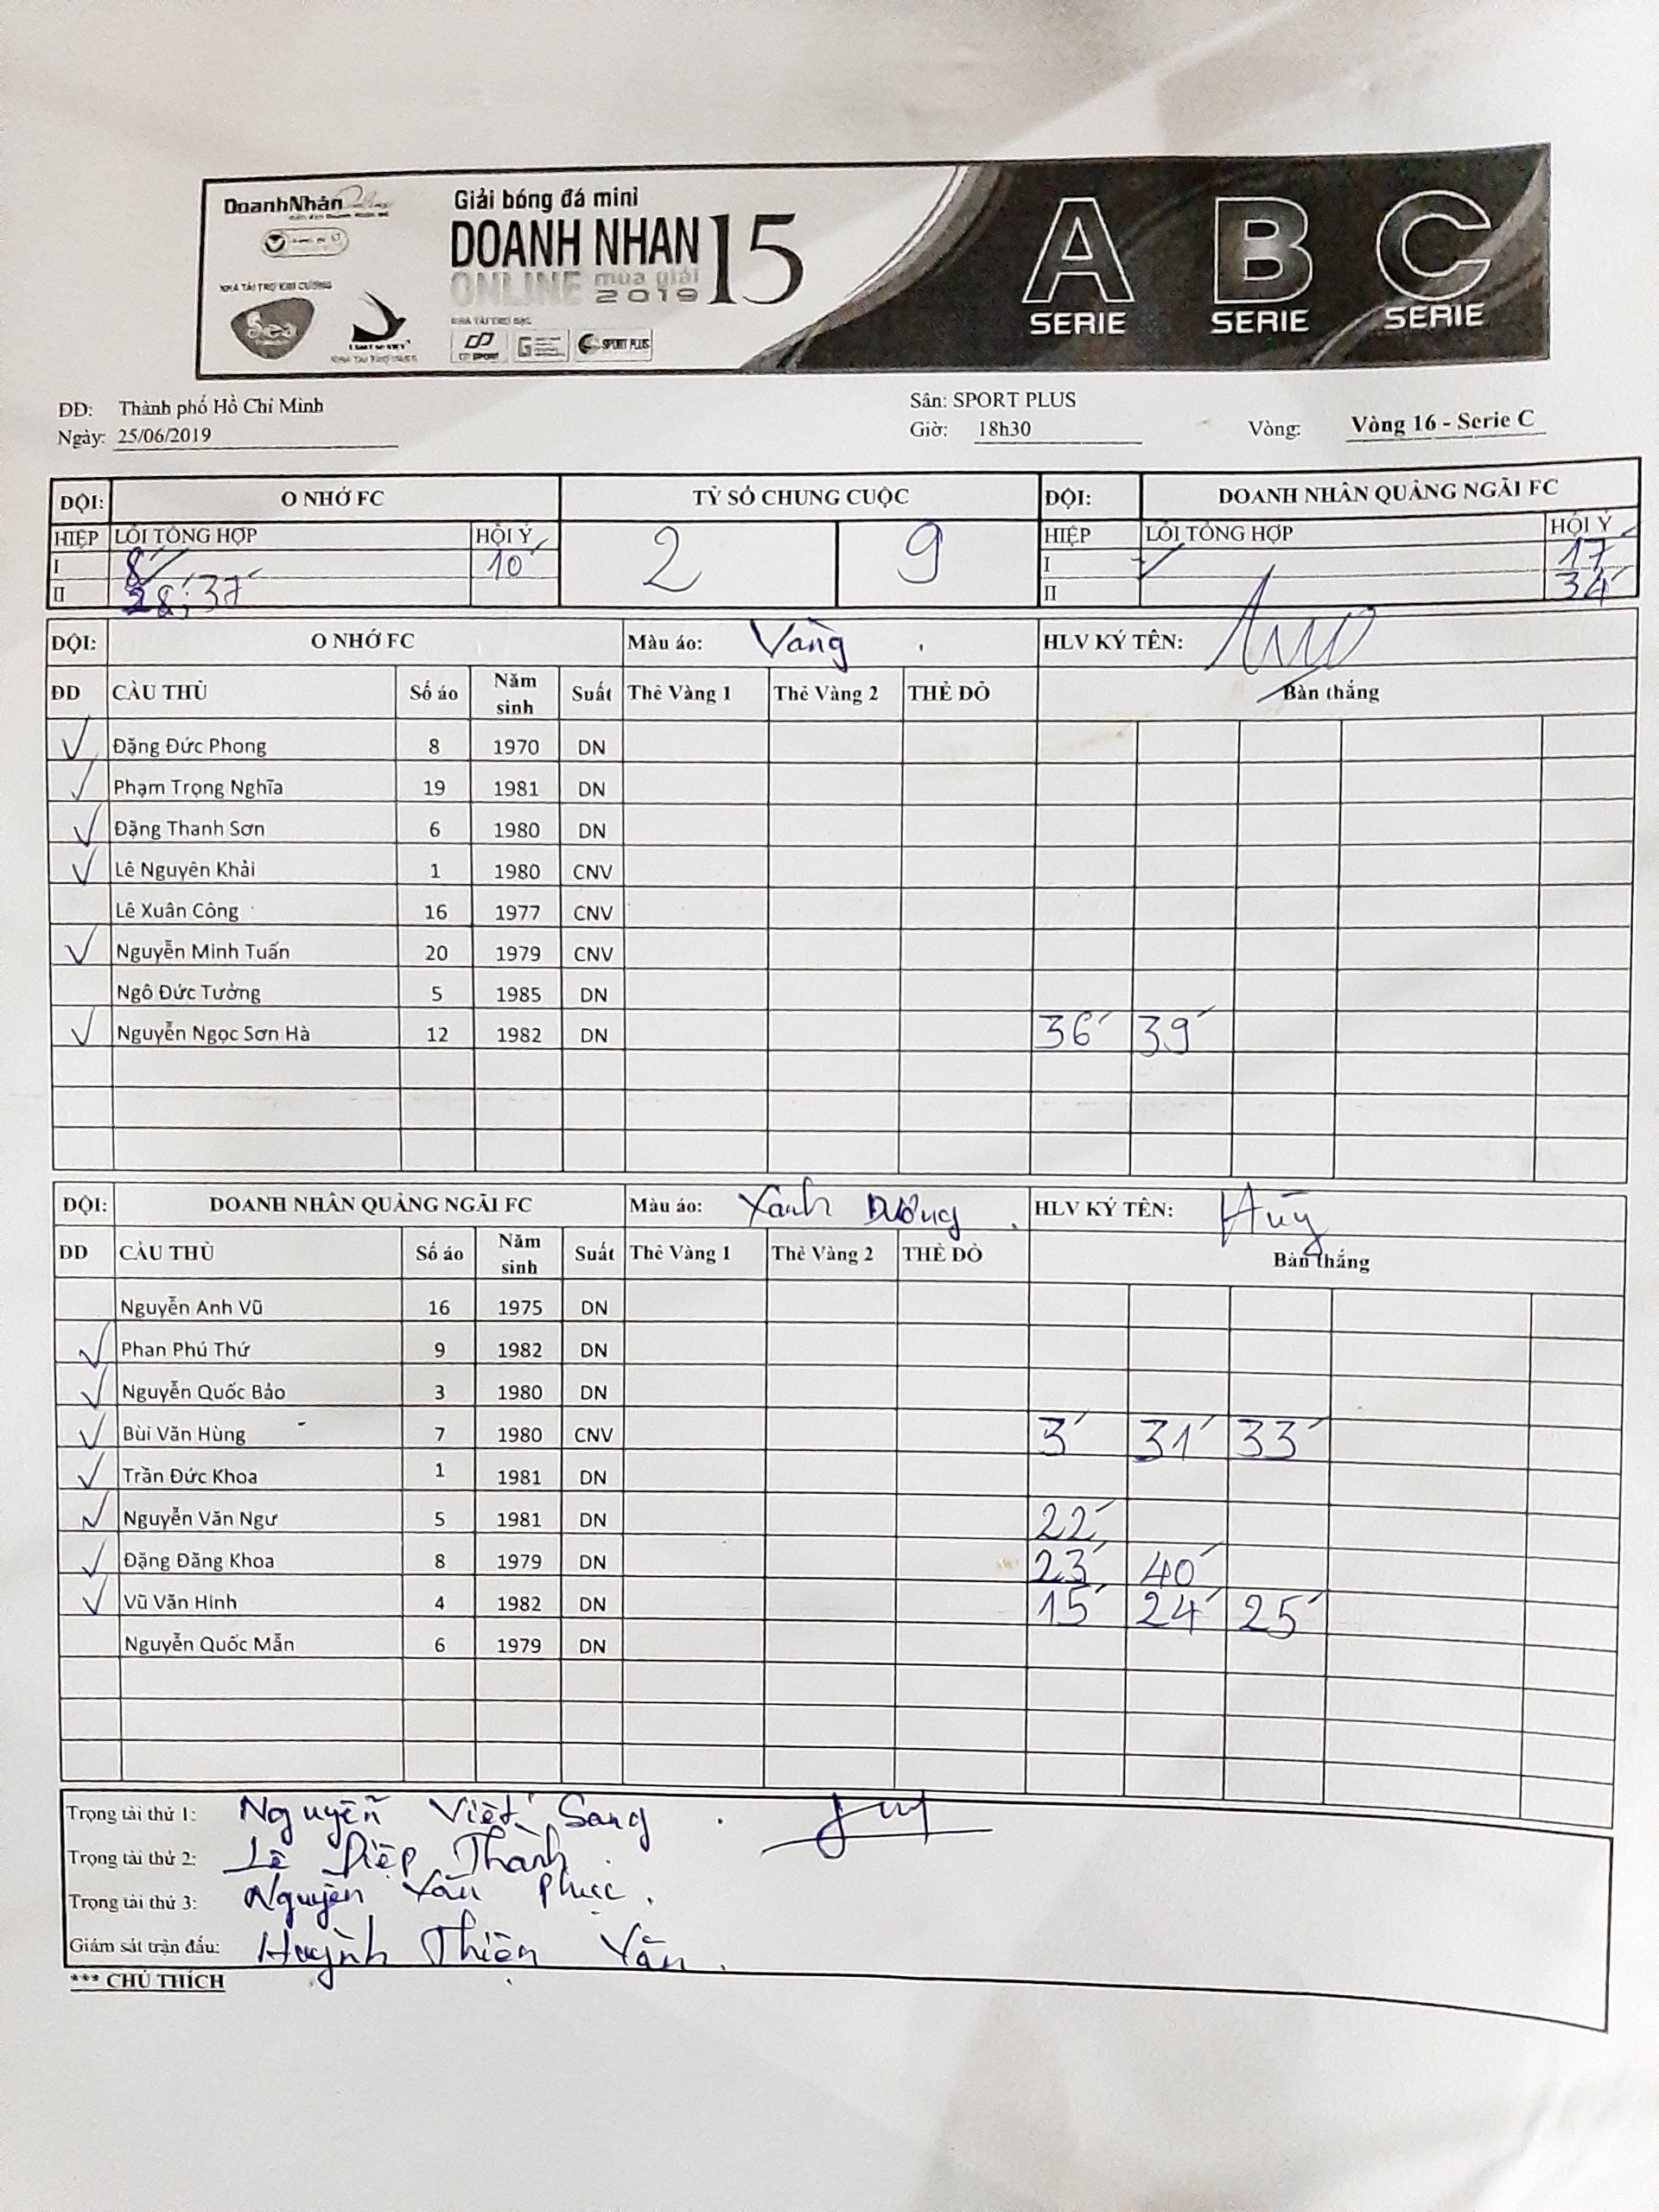 DoanhNhân
Giải bóng đá mini
DOANH NHAN 15
ONLINE mùa giải
2019
NHÀ TÀI TRỢ KIM CƯƠNG
NHÀ TÀI TRỢ BẠC
SPORT PLUS
A B C
SERIE SERIE SERIE
ĐĐ: Thành phố Hồ Chí Minh Sân: SPORT PLUS
Ngày: 25/06/2019 Giờ: 18h30 Vòng: Vòng 16 - Serie C
ĐỘI: O NHỚ FC TỶ SỐ CHUNG CUỘC ĐỘI: DOANH NHÂN QUẢNG NGÃI FC
HIỆP LỖI TỔNG HỢP HỘI Ý 2 9 HIỆP LỖI TỔNG HỢP HỘI Ý
I 8' 10' I 17'
II 28', 37' II 34'
ĐỘI: O NHỚ FC Màu áo: Vàng HLV KÝ TÊN:
ĐD CẦU THỦ Số áo Năm sinh Suất Thẻ Vàng 1 Thẻ Vàng 2 THẺ ĐỎ Bàn thắng
Đặng Đức Phong 8 1970 DN
Phạm Trọng Nghĩa 19 1981 DN
Đặng Thanh Sơn 6 1980 DN
Lê Nguyên Khải 1 1980 CNV
Lê Xuân Công 16 1977 CNV
Nguyễn Minh Tuấn 20 1979 CNV
Ngô Đức Tường 5 1985 DN
Nguyễn Ngọc Sơn Hà 12 1982 DN 36' 39'
ĐỘI: DOANH NHÂN QUẢNG NGÃI FC Màu áo: Xanh Dương HLV KÝ TÊN:
ĐD CẦU THỦ Số áo Năm sinh Suất Thẻ Vàng 1 Thẻ Vàng 2 THẺ ĐỎ Bàn thắng
Nguyễn Anh Vũ 16 1975 DN
Phan Phú Thứ 9 1982 DN
Nguyễn Quốc Bảo 3 1980 DN
Bùi Văn Hùng 7 1980 CNV 3' 31' 33'
Trần Đức Khoa 1 1981 DN
Nguyễn Văn Ngư 5 1981 DN 22'
Đặng Đăng Khoa 8 1979 DN 23' 40'
Vũ Văn Hinh 4 1982 DN 15' 24' 25'
Nguyễn Quốc Mẫn 6 1979 DN
Trọng tài thứ 1: Nguyễn Việt Sang
Trọng tài thứ 2: Lê Diệp Thành
Trọng tài thứ 3: Nguyễn Văn Phúc
Giám sát trận đấu: Huỳnh Thiện Văn
*** CHÚ THÍCH